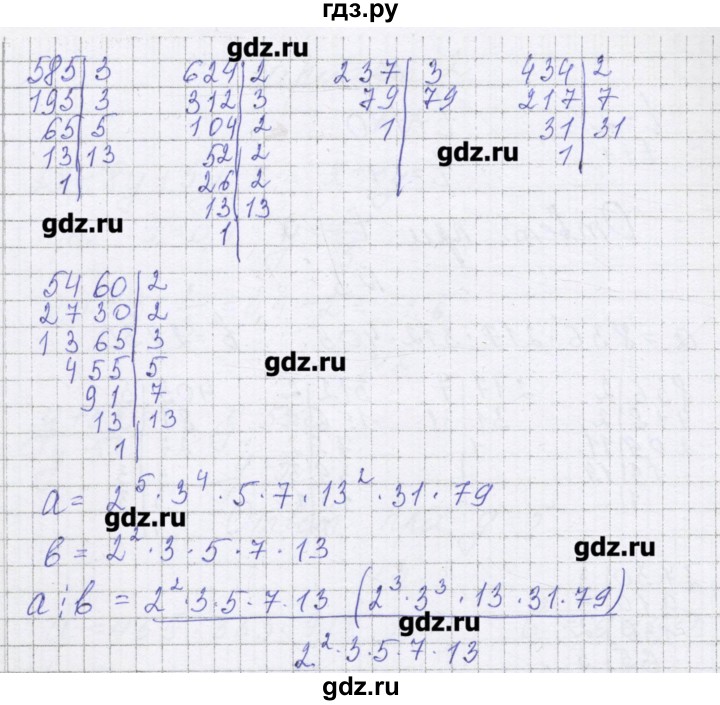 гдз.ру
gdz.ru
585 | 3
195 | 3
65 | 5
13 | 13
1
624 | 2
312 | 3
104 | 2
52 | 2
26 | 2
13 | 13
1
237 | 3
79 | 79
1
434 | 2
217 | 7
31 | 31
1
gdz.ru
gdz.ru
5460 | 2
2730 | 2
1365 | 3
455 | 5
91 | 7
13 | 13
1
gdz.ru
a = 2^5 · 3^4 · 5 · 7 · 13^2 · 31 · 79
gdz.ru
в = 2^2 · 3 · 5 · 7 · 13
gdz.ru
a : в = 2^2 · 3 · 5 · 7 · 13 (2^3 · 3^3 · 13 · 31 · 79)
gdz.ru
2^2 · 3 · 5 · 7 · 13
gdz.ru